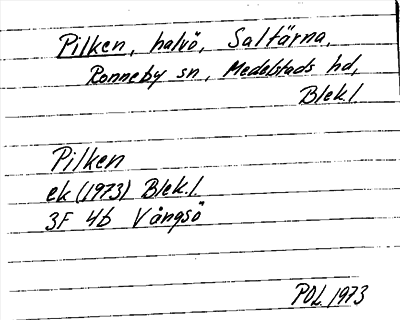 Pilken, halvö, Saltärna,
Ronneby sn, Medelstads hd,
Blek.l.
Pilken
ek (1973) Blek.l.
3F 4b Vångsö
POL 1973